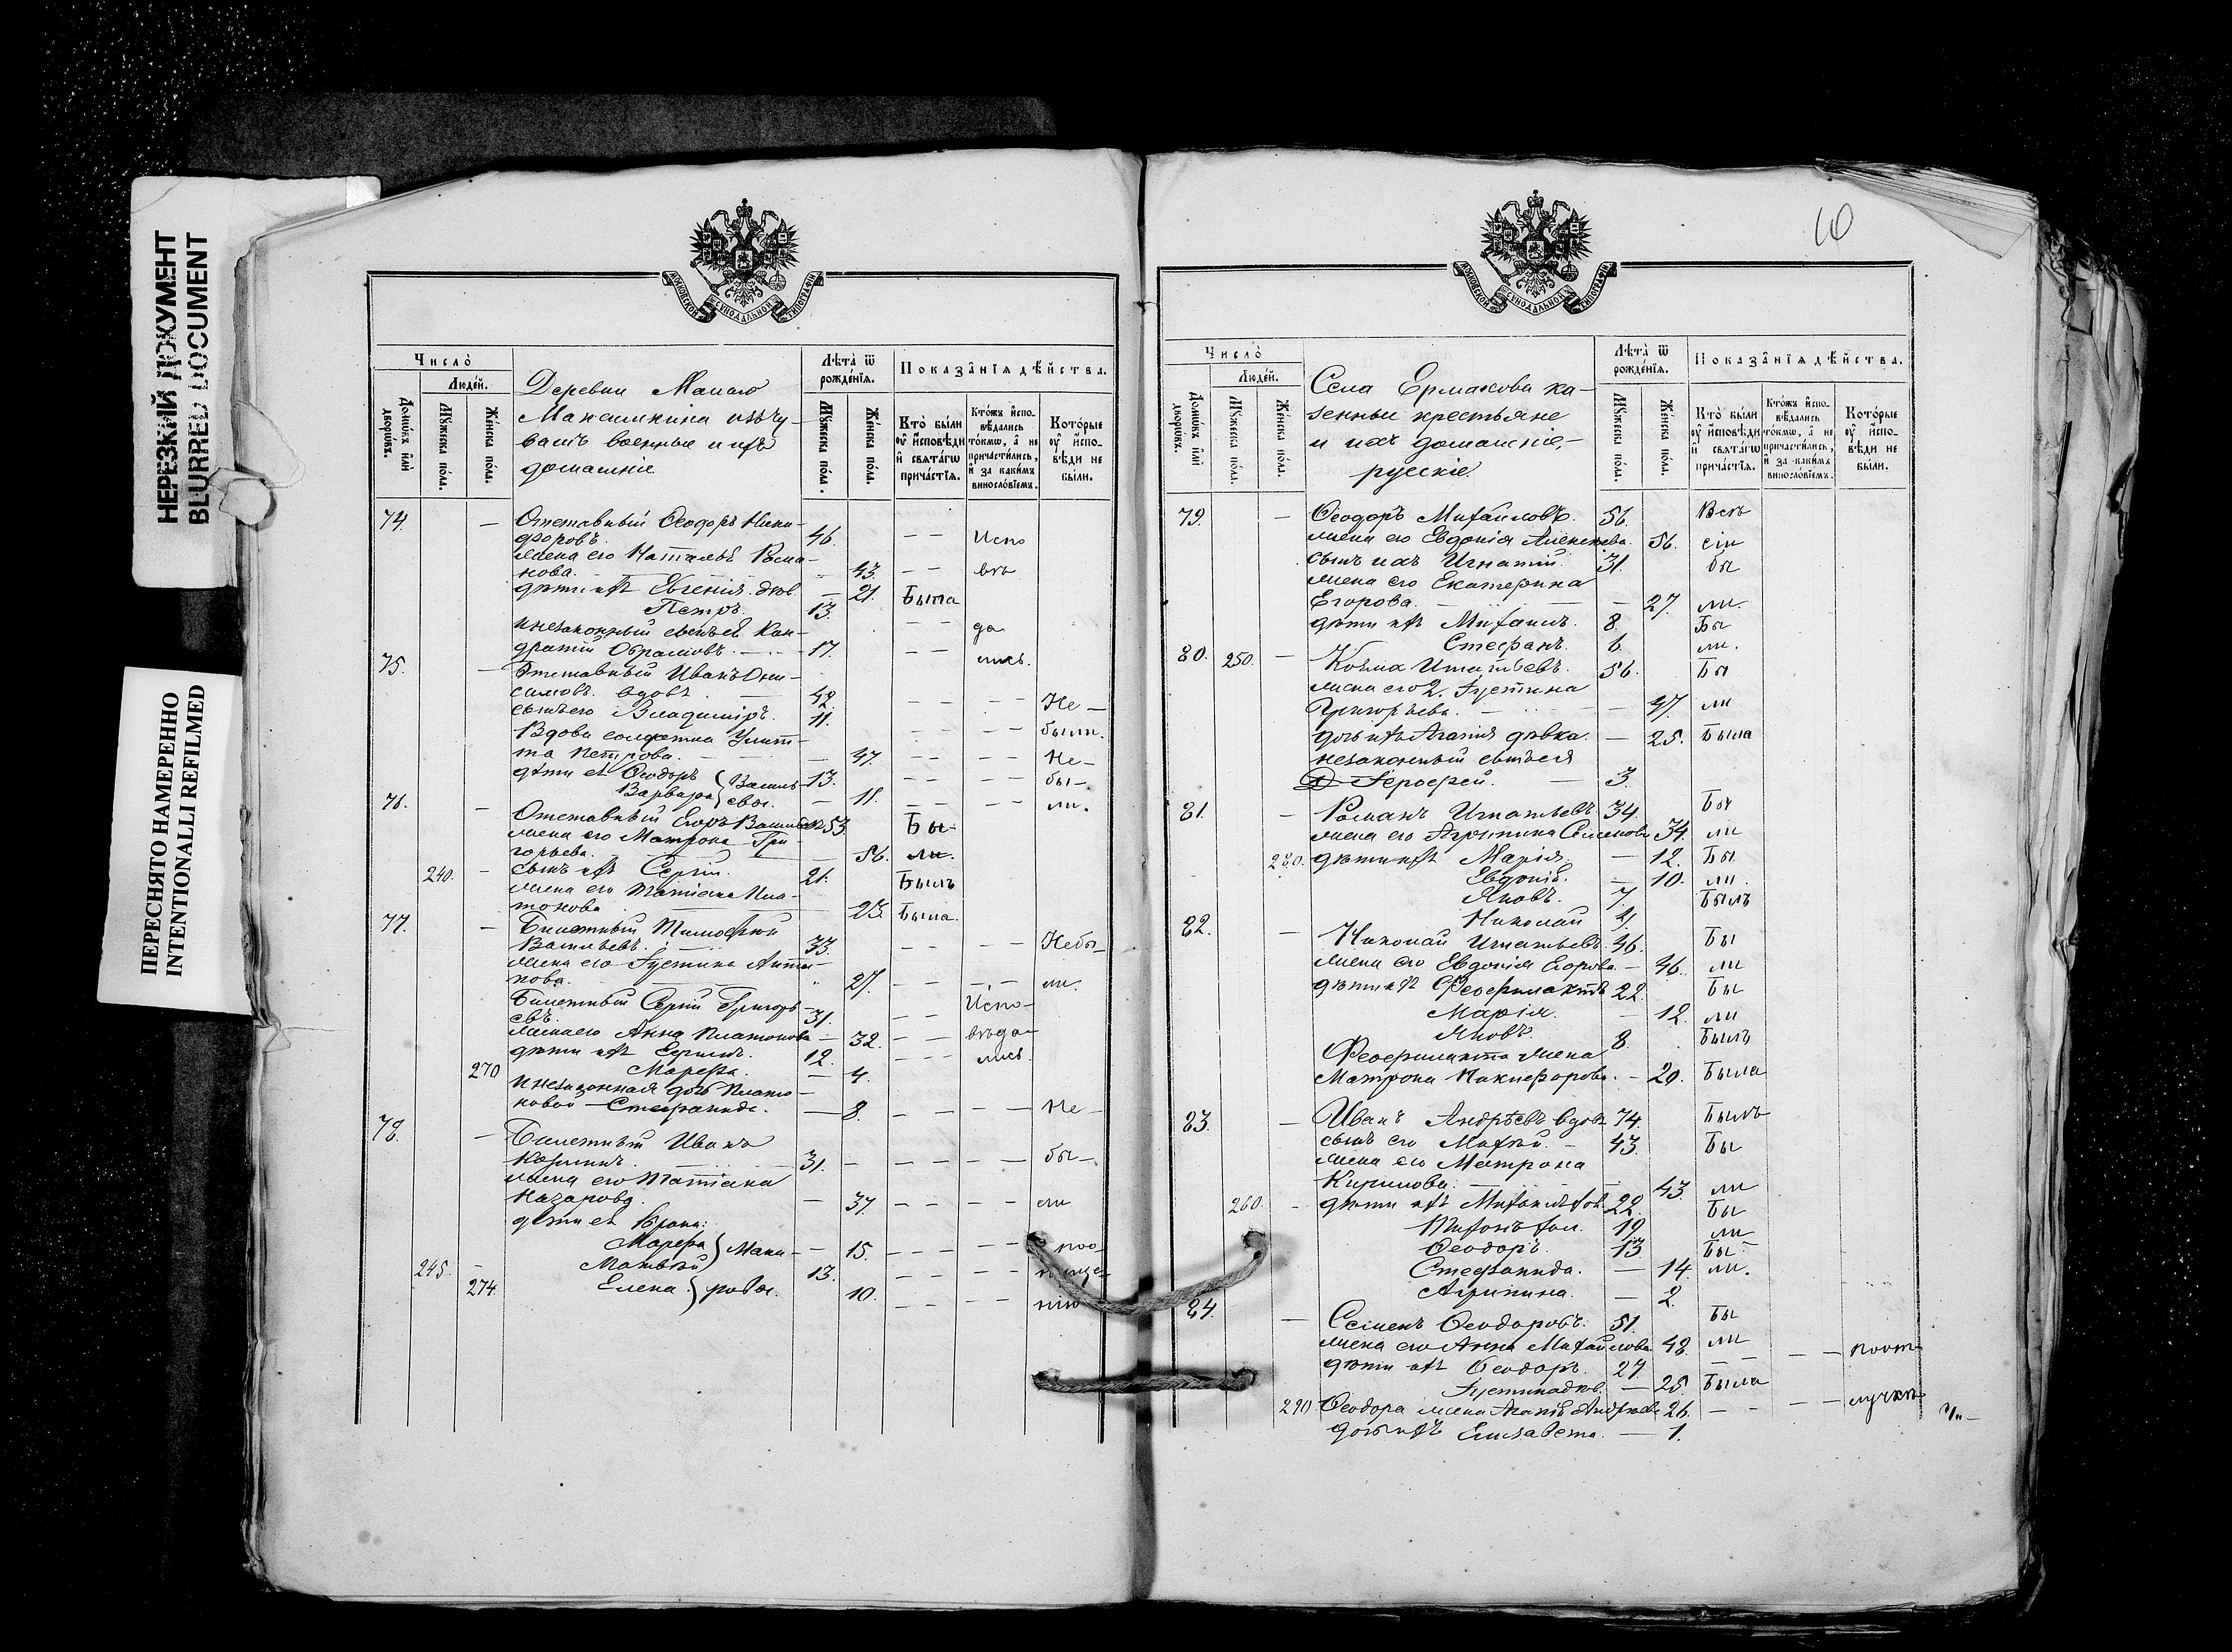 НЕРЕЗКИЙ ДОКУМЕНТ
BLURRED DOCUMENT
ПЕРЕСНЯТО НАМЕРЕННО
INTENTIONALLI REFILMED
Число̀
Людей.
Домѡвъ и҆лѝ дворѡвъ.
Мꙋ́жеска по́ла.
Же́нска по́ла.
Деревни Малаго
Макашкина изъ чу-
вашъ военные и ихъ
домашніе
Лѣта̀ ѿ рожде́нїѧ.
Мꙋ́жеска по́ла.
Же́нска по́ла.
Показа̂нїѧ дѣ́йства.
Кто̀ бы́ли оу҆ и҆́сповѣди и҆ свѧта́гѡ прича́стїѧ.
Кто́жъ и҆спо-вѣ́дались то́кмѡ, а҆ не причасти́лись, и҆ за каки́мъ виносло́вїемъ.
Кото́рые оу҆ и҆́спо-вѣди не бы́ли.
74. — Отставный Ѳеодоръ Ники-
форовъ. 46. — — Испо
жена его Наталья Рома-
нова. 43. — — вѣ
дѣти ихъ Евгенія дѣв. — 21. Была
Петръ. 13.
Кон- — — да
дратій 17. — — лись.
75. — Отставный Иванъ Они-
симовъ вдовъ. 42. — — — — Не —
сынъ его Владиміръ. 11. — — — — были.
Вдова солдатка Улит-
та Петрова. 47. — — — — Не —
дѣти ея Ѳеодоръ } Василь- 13. — — — — бы —
Варвара } евы. — 11. — — — — ли.
76. — Отставный Егоръ Васильевъ 53. Бы-
жена его Матрона Гри-
горьева. 56. ли.
240. — сынъ ихъ Сергій. 21. Былъ
жена его Татіана Пла-
тонова 23. Была.
77. — Билетный Тимофей
Васильевъ. 33. — — — — Небы-
жена его Іустина Анти-
пова. 27. — — — — ли.
Билетный Сергій Григорь-
евъ. 31. — — Испо-
жена его Анна Платонова — 32. — — вѣда-
дѣти ихъ 12. — — лись
270 Марѳа. — 4.
незаконная дочь Плато-
новой — Стефанида. — 8. — — — — Не —
78. — Билетный Иванъ
31. — — — — бы —
жена его Татіана
Назарова. — 37. — — — — ли
дѣти ея
Марѳа } Мака- — 15. — — — — поо-
245. — Матвѣй 13. — — — —
274 Елена. } ровы. 10. — — нію
10
Число̀
Людей.
Домѡвъ и҆лѝ дворѡвъ.
Мꙋ́жеска по́ла.
Же́нска по́ла.
Села Ермакова ка-
зенные крестьяне
и ихъ домашніе,
русскіе.
Лѣта̀ ѿ рожде́нїѧ.
Мꙋ́жеска по́ла.
Же́нска по́ла.
Показа̂нїѧ дѣ́йства.
Кто̀ бы́ли оу҆ и҆́сповѣди и҆ свѧта́гѡ прича́стїѧ.
Кто́жъ и҆спо-вѣ́дались то́кмѡ, а҆ не причасти́лись, и҆ за каки́мъ виносло́вїемъ.
Кото́рые оу҆ и҆́спо-вѣди не бы́ли.
79. — Ѳеодоръ Михайловъ. 56. Всѣ
жена его Евдокія Алексѣева. 56. сіи
сынъ ихъ Игнатій. 31. бы
жена его Екатерина
Егорова. — 27. ли.
дѣти ихъ Михаилъ. 8. Бы
Стефанъ. 6. ли.
80. 250. — Козма Игнатьевъ. 56. Бы
жена его 2. Іустина
Григорьева. — 47. ли
дочь ихъ Агапія дѣвка. — 25. Была
незаконный сынъ ея
Іероѳей. 3.
81. — Романъ Игнатьевъ 34. Бы
жена его Агрипина Семенова 34. ли
280. дѣти ихъ Марія. — 12. Бы
Евдокія. — 10. ли.
Яковъ. 7. Былъ
Николай 4.
82. — Николай Игнатьевъ. 46. Бы
жена его Евдокія Егорова — 46. ли
дѣти ихъ Феофилактъ 22. Бы
Марія. — 12. ли
Яковъ. 8. Былъ
Феофилакта жена
Матрона Никифорова. — 20. Была
83. — Иванъ Андрѣевъ вдовъ 74. Былъ
сынъ его 43. Бы
жена его Матрона
Кирилова. 43. ли
260. — дѣти ихъ Михаилъ хол. 22. Бы
Тихонъ хол. 19 ли
Ѳеодоръ. 13 Бы-
Стефанида. — 14. ли.
Агрипина. — 2.
84. — Семенъ Ѳеодоровъ. 51. Бы
жена его Анна Михайлова 48. ли
дѣти ихъ Ѳеодоръ. 27. — — — — поот-
Іустина дѣв. — 25. Была
290. Ѳеодора жена Агапія Андрѣева 26. — — — — лучкѣ
дочь ихъ Елисавета. — 1.